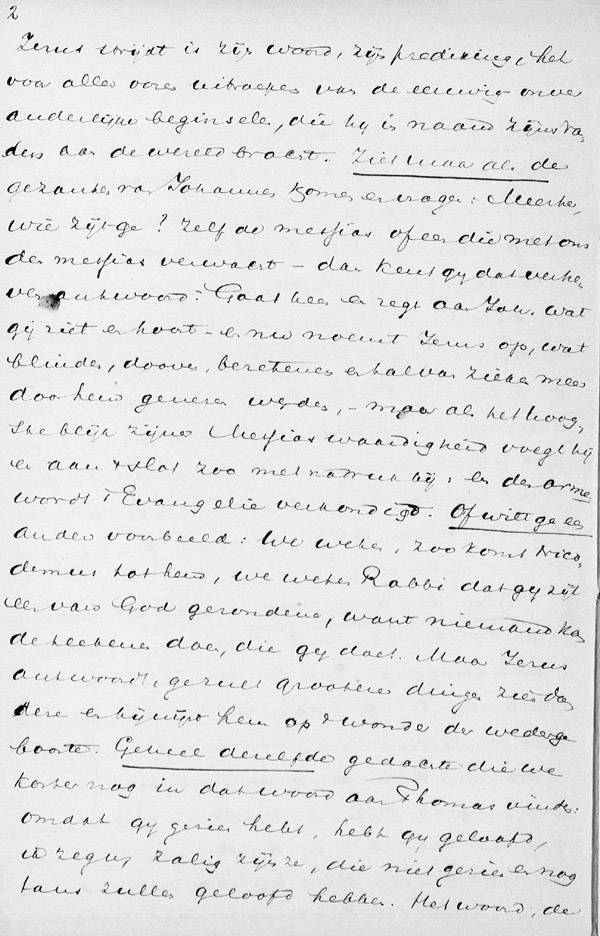 2
Jezus strijdt is zijn woord, zijn prediking, het
voor alles eerst uitroepen van de eeuwig onver
anderlijke beginselen, die hij in naam zijns Va
ders aan de wereld bracht. Ziet maar als de
gezanten van Johannes komen en vragen: Meester,
wie zijt ge? Zelf de Messias of een die met ons
den Messias verwacht – dan kent gij dat verhe
ven antwoord: Gaat heen en zegt aan Joh. wat
gij ziet en hoort – en nu noemt Jezus op, wat
blinden, dooven, bezetenen en halvar zieken meer
door hem genezen werden, – maar als het hoog
ste blijk zijner Messias waardigheid voegt hij
er aan 't slot zoo met nadruk bij: en den armen
wordt 't Evangelie verkondigd. Of wilt ge een
ander voorbeeld: We weten, zoo komt Nico
demus tot hem, we weten Rabbi dat gij zijt
een van God gezondene, want niemand kan
de teekenen doen, die gij doet. Maar Jezus
antwoordt, ge zult grootere dingen zien dan
deze en hij wijst hem op 't wonder der wederge
boorte. Geheel dezelfde gedachte die we
korter nog in dat woord aan Thomas vinden:
omdat gij gezien hebt, hebt gij geloofd,
zalig zijn ze, die niet gezien en nog
tans zullen geloofd hebben. Het woord, de